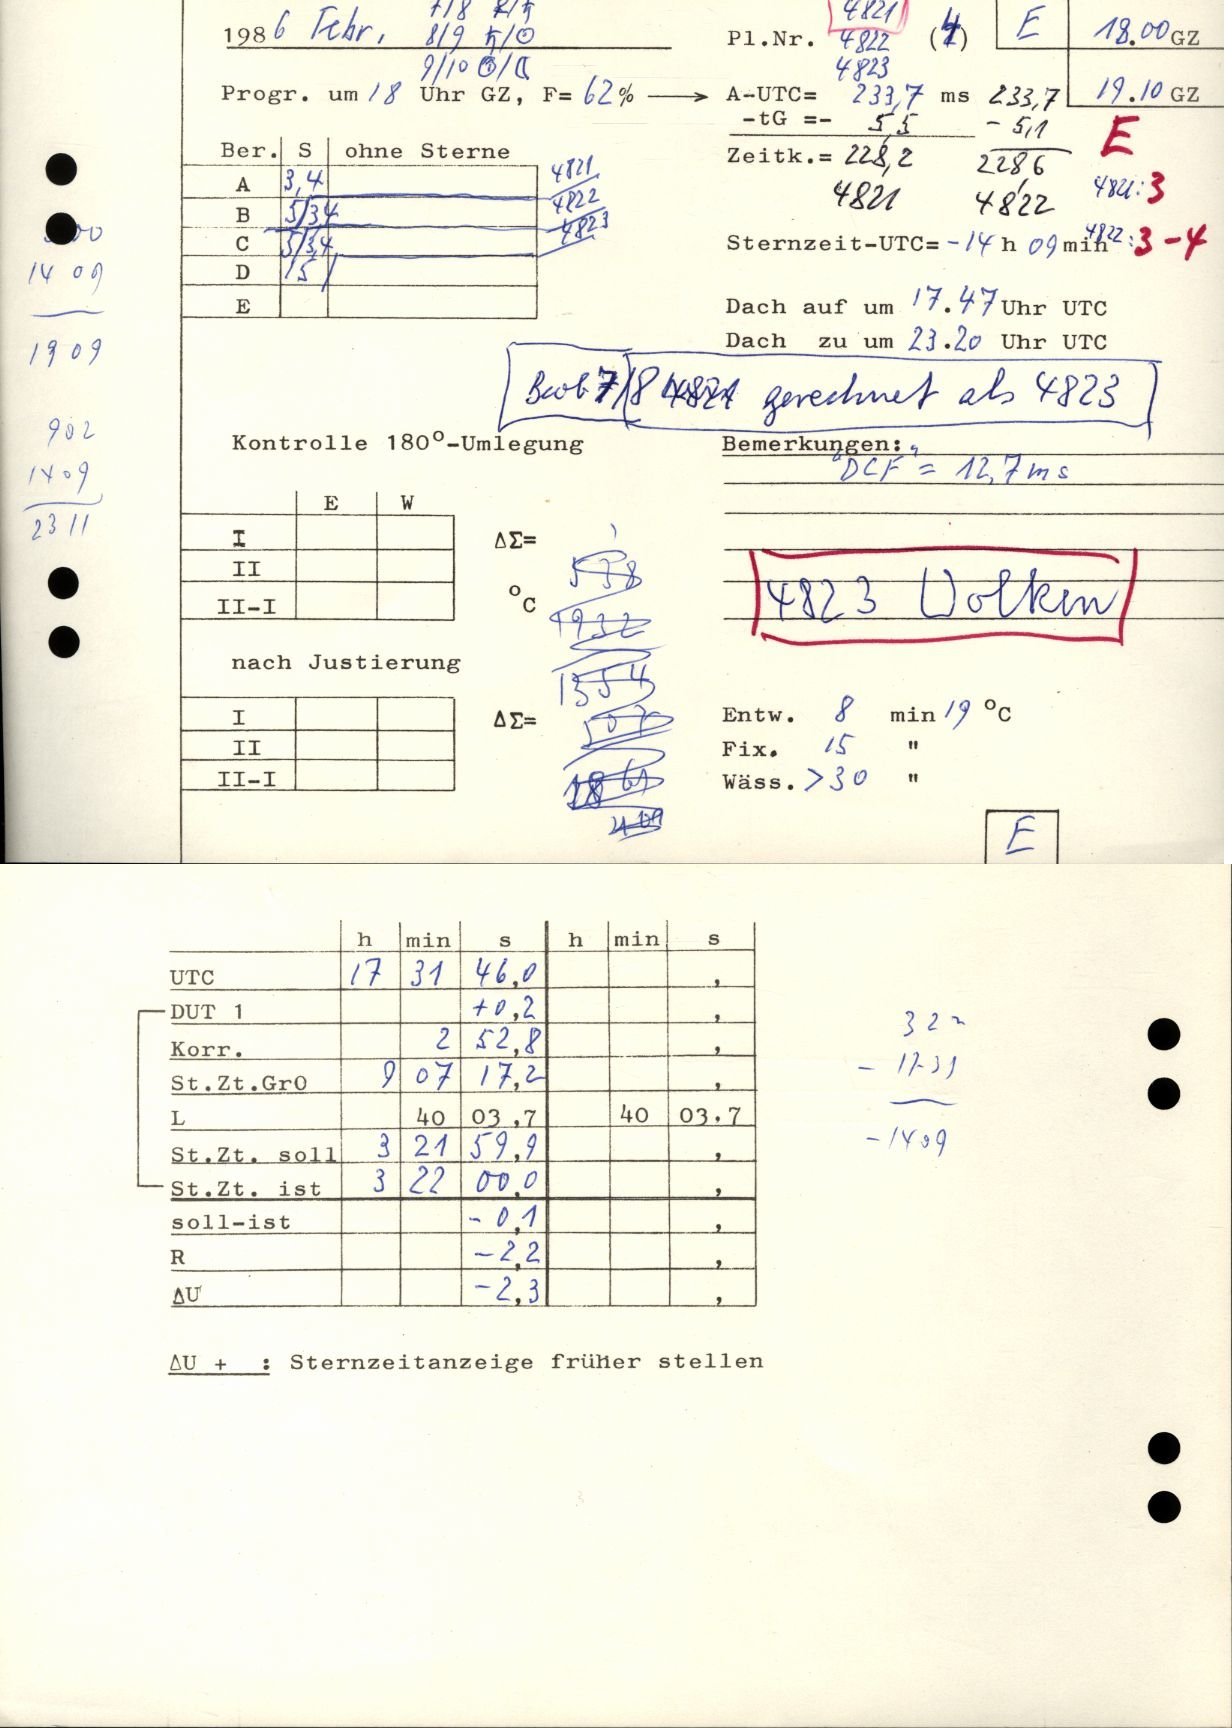 4821
1986 Febr. 8/9 ♄/☉ Pl.Nr. 4822 E 18.00 GZ
4823
Progr. um 18 Uhr GZ, F= 62% → A-UTC= 233,7 ms 233,7 19.10 GZ
-tG =- 5,5 - 5,1 E
Zeitk.= 228,2 228,6
4821 4822
4821: 3
4822: 3-4
Ber. S ohne Sterne
A 3,4 4821
B 5/3,4 4822
C 5/3,4 4823
D 5
E
Sternzeit-UTC= -14 h 09 min
14 09
19 09
Dach auf um 17.47 Uhr UTC
Dach zu um 23.20 Uhr UTC
Beob 7/8 4821 gerechnet als 4823
902
1409
2311
Kontrolle 180°-Umlegung
Bemerkungen:
"DCF" = 12,7 ms
E W
I ΔΣ=
II
II-I °C
4823 Wolken
nach Justierung
I ΔΣ=
II
II-I
Entw. 8 min 19 °C
Fix. 15 "
Wäss. >30 "
E
h min s h min s
UTC 17 31 46,0 ,
DUT 1 +0,2 ,
Korr. 2 52,8 ,
St.Zt.Gr0 9 07 17,2 ,
L 40 03,7 40 03.7
St.Zt. soll 3 21 59,9 ,
St.Zt. ist 3 22 00,0 ,
soll-ist - 0,1 ,
R -2,2 ,
ΔU -2,3 ,
322
- 1731
-1409
ΔU + : Sternzeitanzeige früher stellen